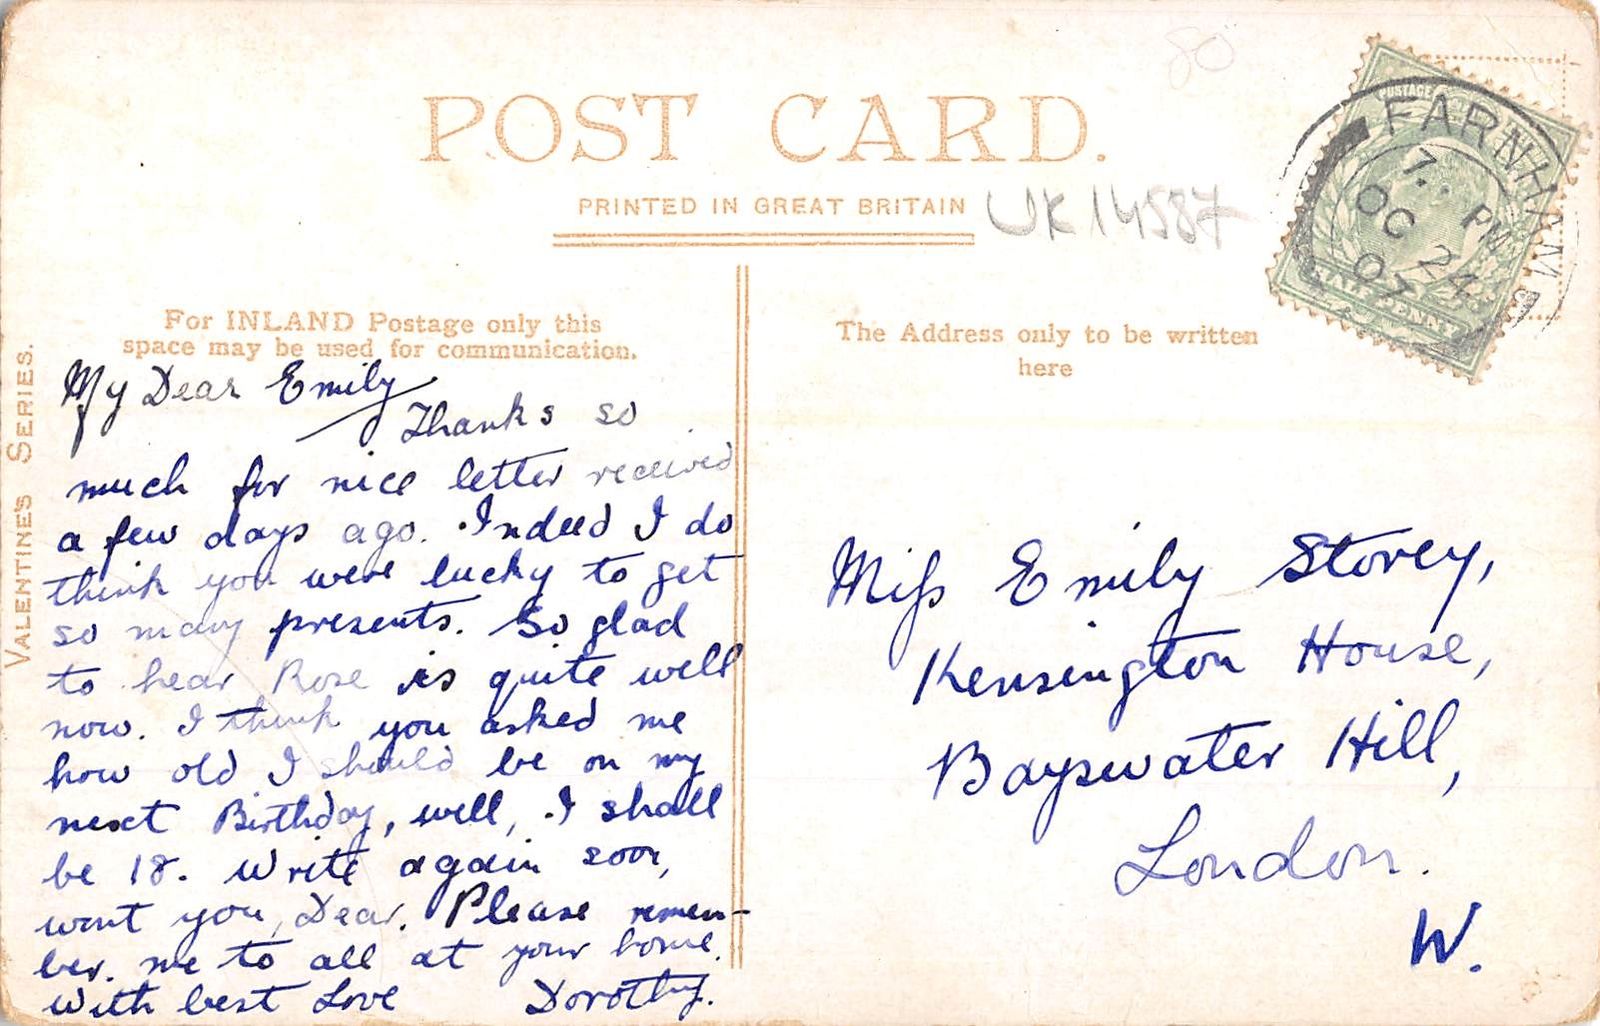 80
POST CARD.
PRINTED IN GREAT BRITAIN
UK14587
POSTAGE
HALFPENNY
FARNHAM
7. PM
OC 24
07
For INLAND Postage only this
space may be used for communication.
The Address only to be written
here
VALENTINE'S SERIES.
My Dear Emily
Thanks so
much for nice letter received
a few days ago. Indeed I do
think you were lucky to get
so many presents. So glad
to hear Rose is quite well
now. I think you asked me
how old I should be on my
next Birthday, well, I shall
be 18. Write again soon,
wont you, Dear. Please remem-
ber. me to all at your home.
With best Love Dorothy.
Miss Emily Storey,
Kensington House,
Bayswater Hill,
London.
W.